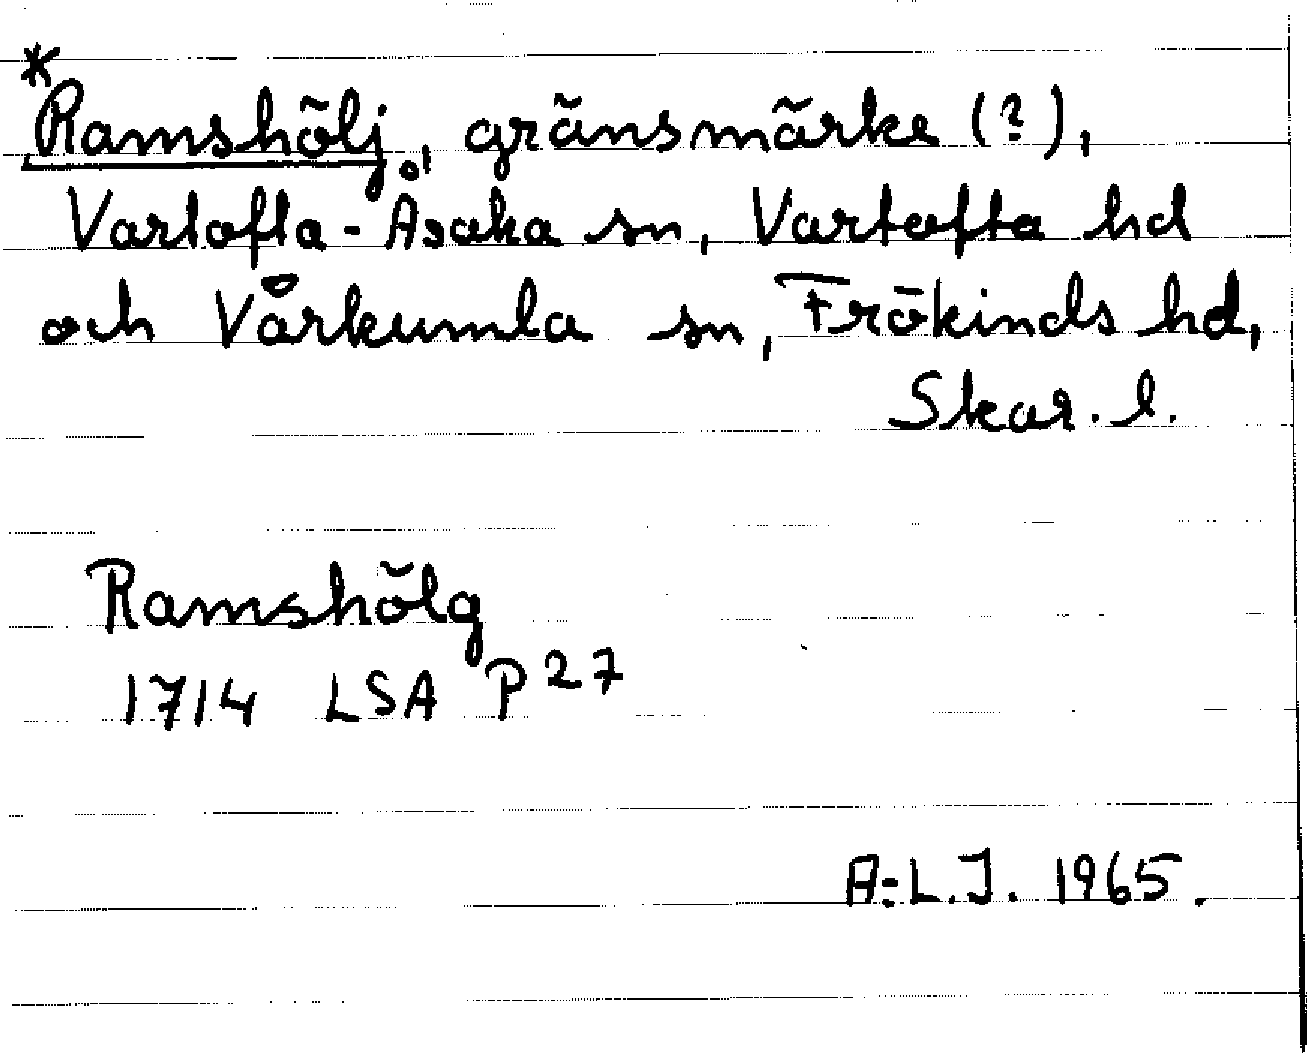 *Ramshölj, gränsmärke (?),
Vartofta-Åsaka sn, Vartofta hd
och Vårkumla sn, Frökinds hd,
Skar. l.
Ramshölg
1714 LSA P 27
A-L.J. 1965.